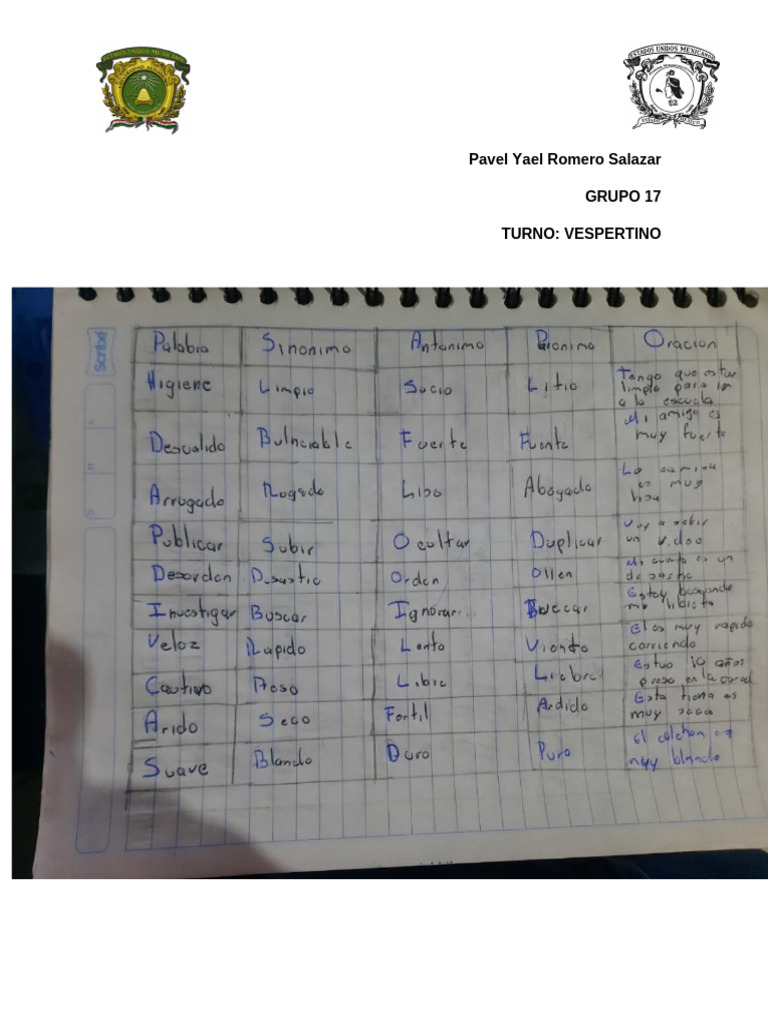 ESTADOS UNIDOS MEXICANOS
Pavel Yael Romero Salazar
GRUPO 17
TURNO: VESPERTINO
Scribe
Palabra Sinonimo Antonimo Paronimo Oracion
Higiene Limpio Sucio Litio Tengo que estar
limpio para ir
a la escuela
Desvalido Bulnerable Fuerte Fuente Mi amigo es
muy fuerte
Arrugado Rugado Liso Abogado La camisa
es muy
lisa
Publicar Subir Ocultar Duplicar Voy a subir
un video
Desorden Desastre Orden Ollen Mi cuarto es un
desastre
Investigar Buscar Ignorar Buccar Estoy buscando
mi libreta
Veloz Rapido Lento Viento El es muy rapido
corriendo
Cautivo Preso Libre Liebre Estuvo 10 años
preso en la carcel
Arido Seco Fertil Ardido Esta tierra es
muy seca
Suave Blando Duro Puro El colchon es
muy blando